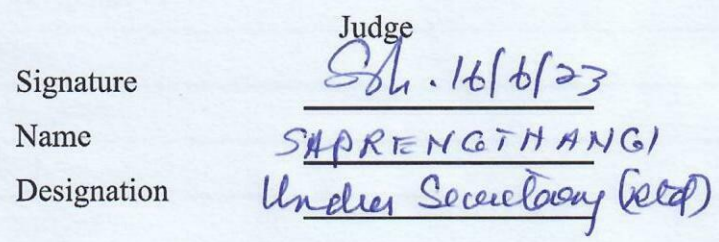 Judge
Signature Sh. 16/6/23
Name SAPRENGTHANGI
Designation Under Secretary (retd)